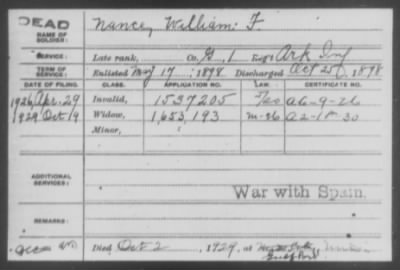 DEAD
NAME OF SOLDIER: Nance, William F.
SERVICE: Late rank, Co. G, 1 Reg't Ark Inf
TERM OF SERVICE: Enlisted May 17, 1898. Discharged Oct 25, 1898
DATE OF FILING. CLASS. APPLICATION NO. LAW. CERTIFICATE NO.
1926 Apr. 29 Invalid, 1537205 A6-9-26
1929 Oct 19 Widow, 1,653,193 A2-18-30
Minor,
ADDITIONAL SERVICES:
War with Spain.
REMARKS:
Died Oct 2, 1929, at
Gulfport